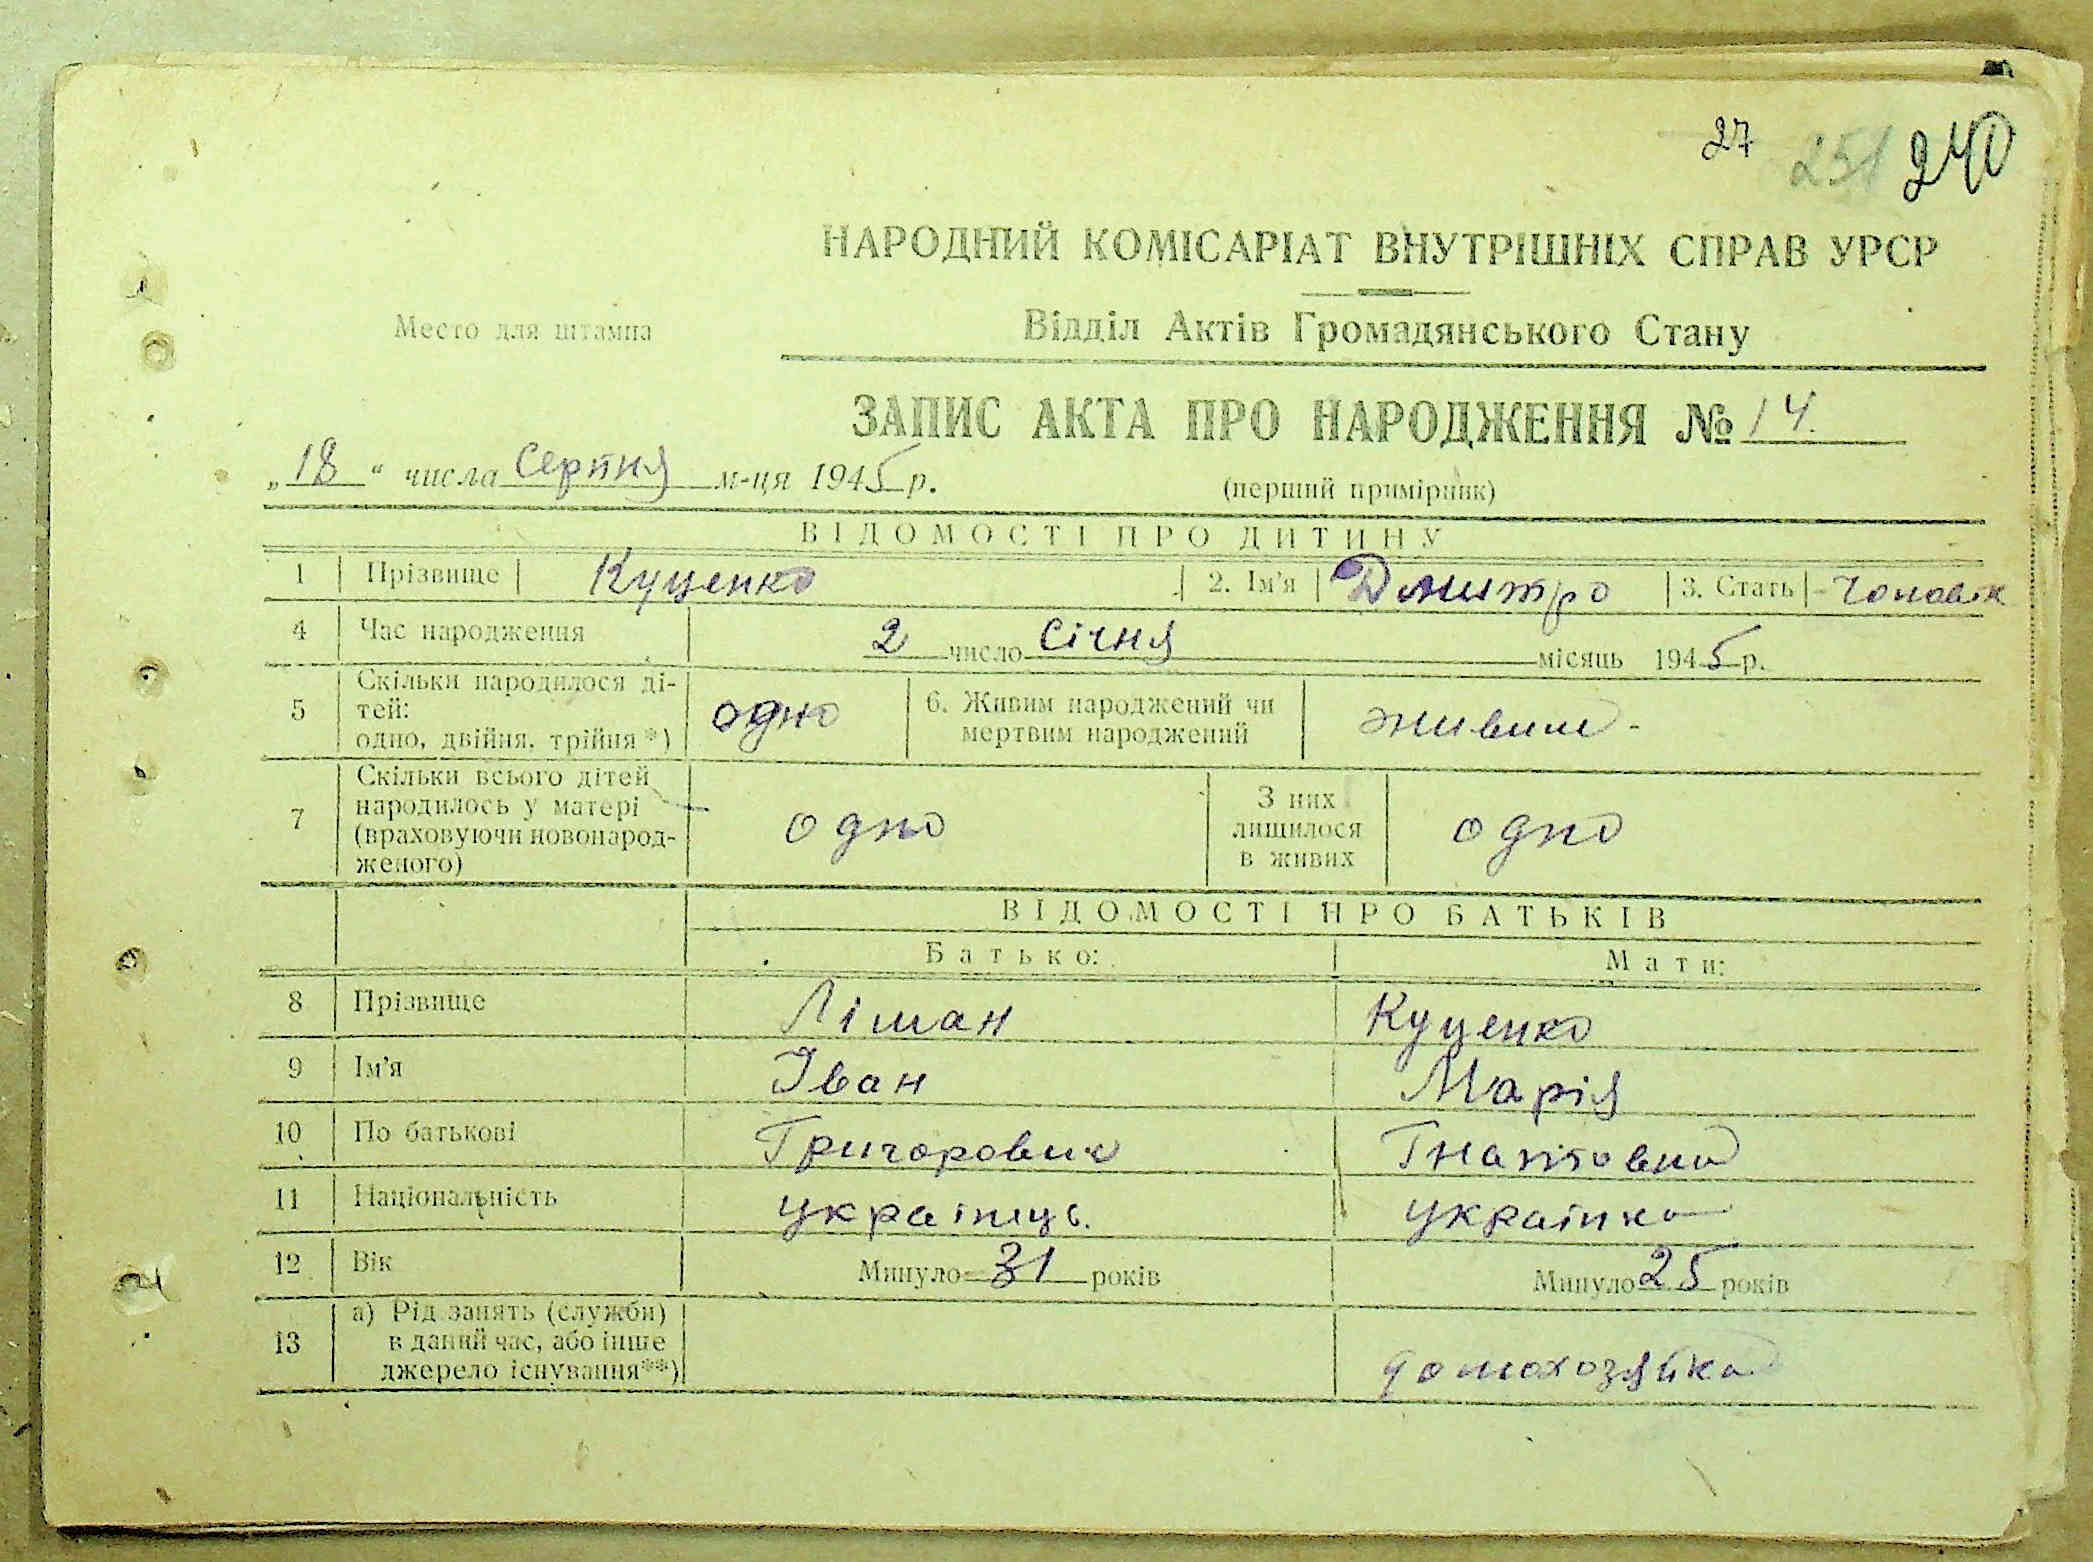 27 251 240
НАРОДНИЙ КОМІСАРІАТ ВНУТРІШНІХ СПРАВ УРСР
Место для штампа
Відділ Актів Громадянського Стану
ЗАПИС АКТА ПРО НАРОДЖЕННЯ № 14.
„18“ числа Серпня м-ця 1945 р.
(перший примірник)
ВІДОМОСТІ ПРО ДИТИНУ
1 Прізвище Куценко 2. Ім'я Дмитро 3. Стать Чоловік
4 Час народження 2 число Січня місяць 1945 р.
5 Скільки народилося ді-
тей:
одно, двійня, трійня*) одно 6. Живим народжений чи
мертвим народжений живим -
7 Скільки всього дітей
народилось у матері
(враховуючи новонарод-
женого) одно З них
лишилося
в живих одно
ВІДОМОСТІ ПРО БАТЬКІВ
Батько: Мати:
8 Прізвище Ліман Куценко
9 Ім'я Іван Марія
10 По батькові Григорович Гнатовна
11 Національність українець. українка
12 Вік Минуло 31 років Минуло 25 років
13 а) Рід занять (служби)
в даний час, або інше
джерело існування**) домохозяйка